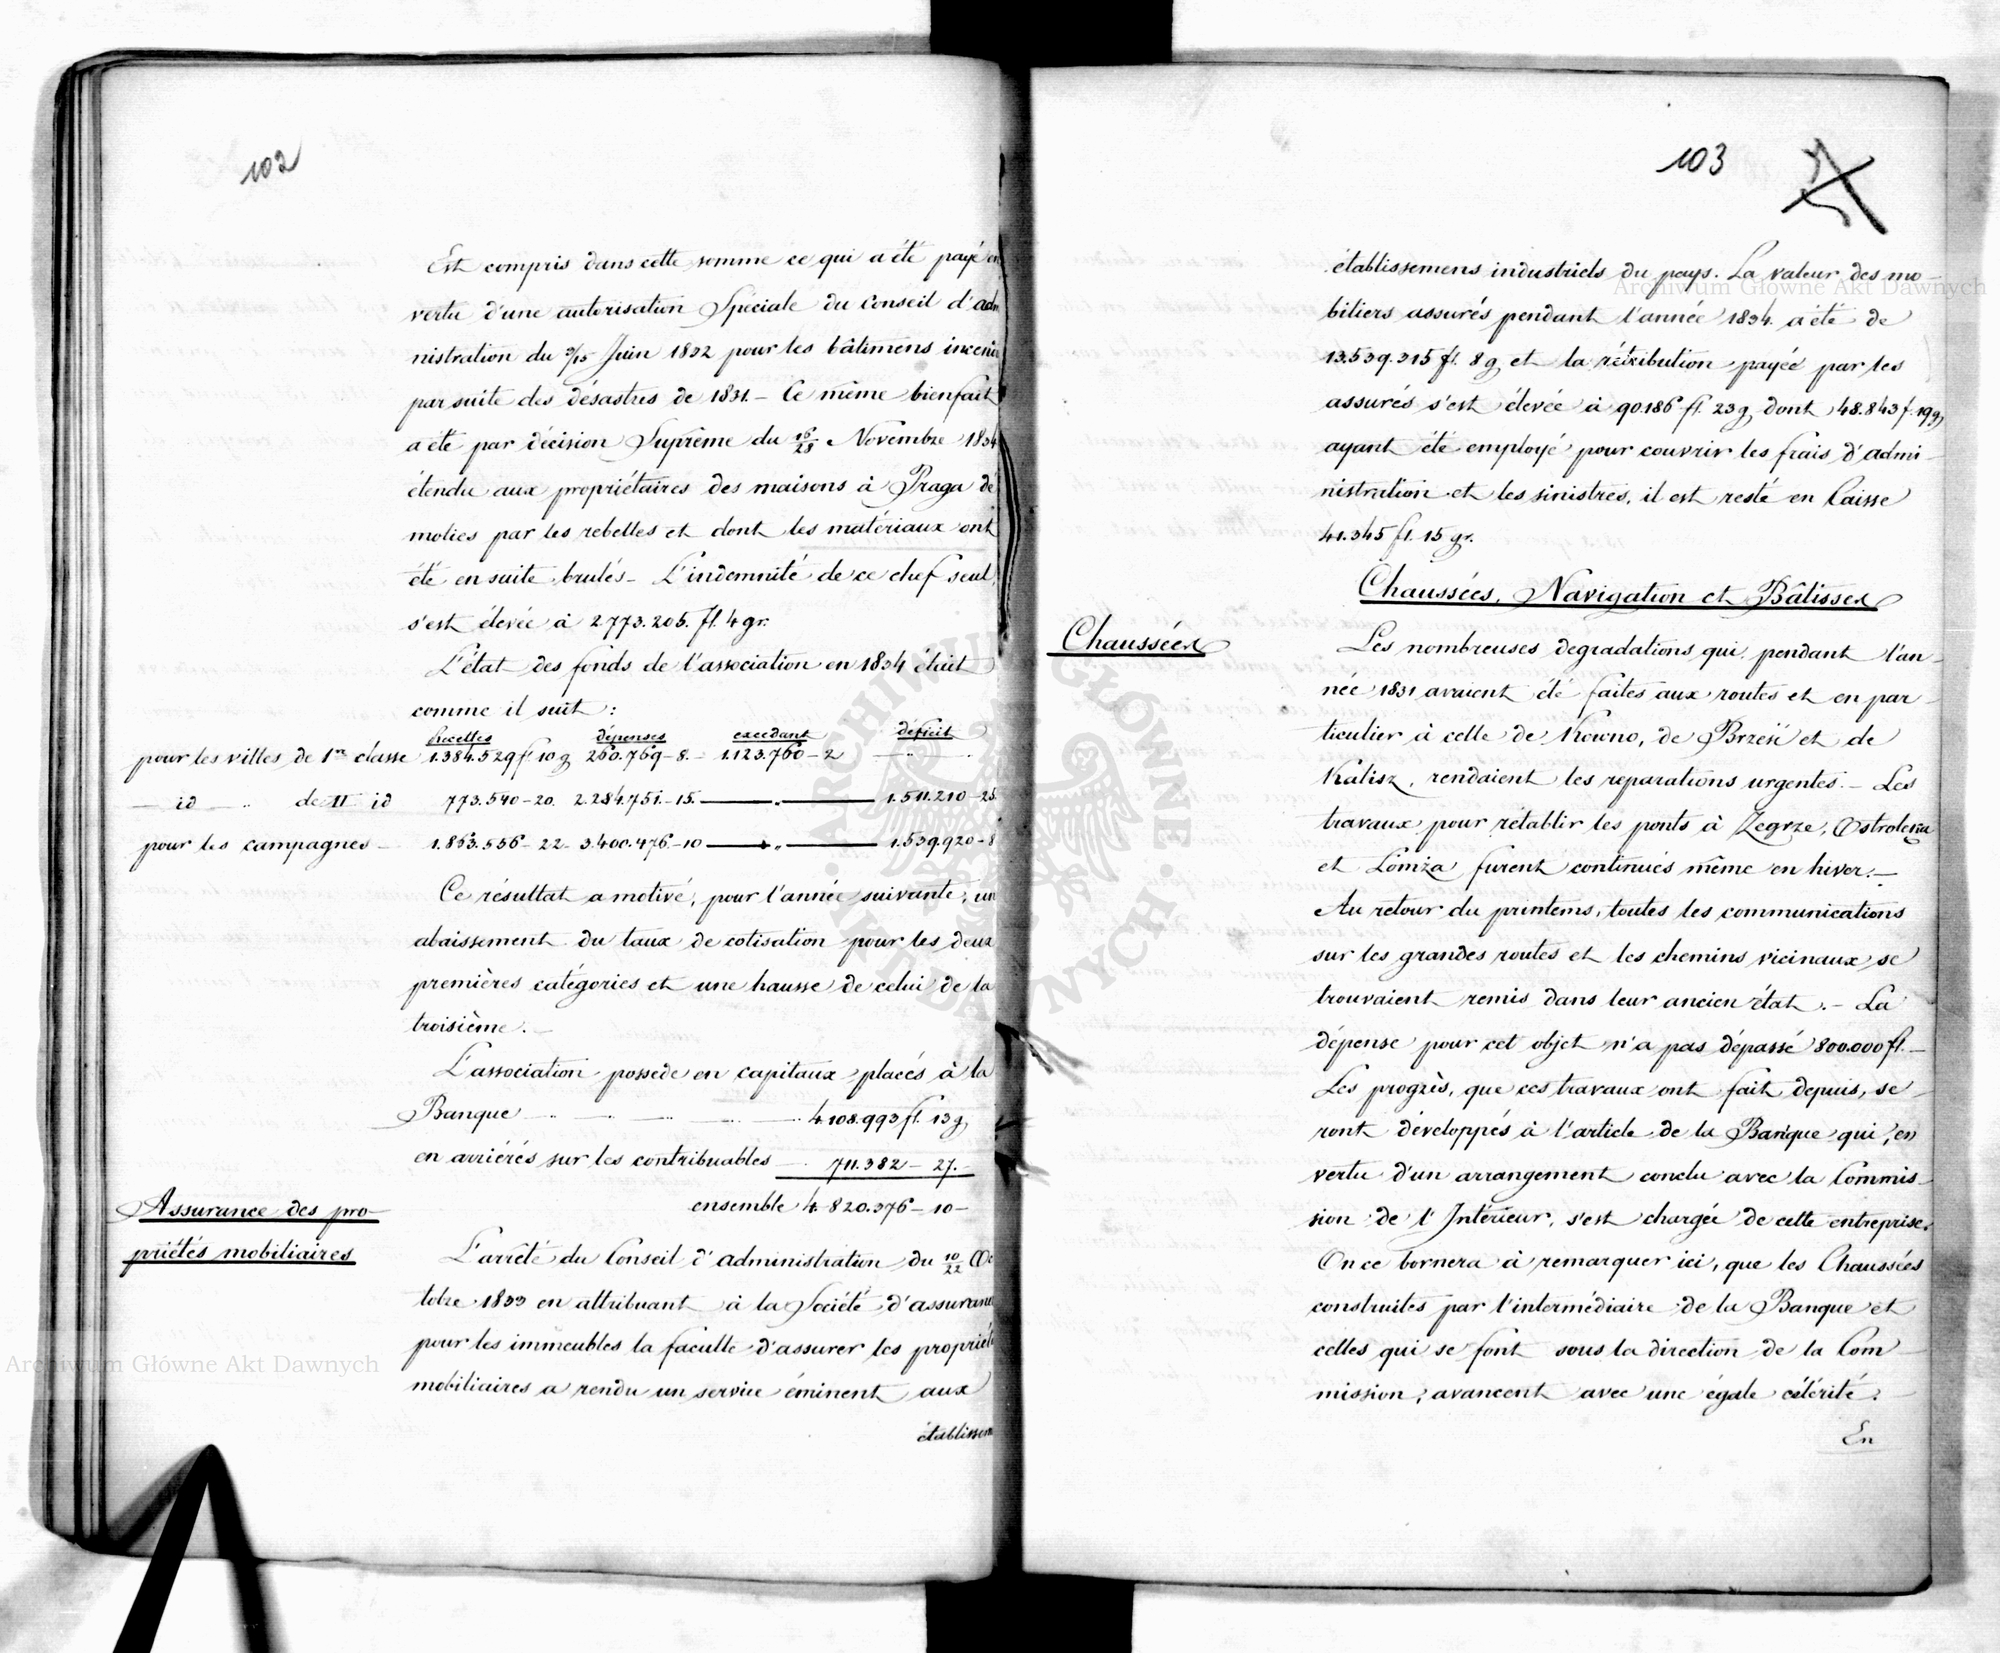 102
Est compris dans cette somme ce qui a été payé en
vertu d'une autorisation Spéciale du Conseil d'adm
nistration du 3/15 Juin 1832 pour les bâtimens incen
par suite des désastres de 1831.- Ce même bienfait
a été par décision Suprême du 16/28 Novembre 1834
étendu aux propriétaires des maisons à Praga dé
molies par les rebelles et dont les matériaux ont
été ensuite brulés- L'indemnité de ce chef seul
s'est élevée à 2773.205. fl. 4 gr.
L'état des fonds de l'association en 1834 était
comme il suit :
Recettes dépenses excédant déficit
pour les villes de 1re classe 1.384.529 f. 10 g 260.769-8.- 1.123.760-2
— id — " de II id 773.540-20. 2.284.751.-15. — " — 1.511.210-25.
pour les campagnes - 1.863.556-22- 3.400.476-10 — " — 1.539.920-8
Ce résultat a motivé, pour l'année suivante, un
abaissement du taux de cotisation pour les deux
premières catégories et une hausse de celui de la
troisième.-
L'association possède en capitaux placés à la
Banque — — — — 4.108.993 fl. 13 g
en arriérés sur les contribuables — 711.382-27.-
ensemble 4.820.376-10-
Assurance des pro-
priétés mobiliaires
L'arrêté du Conseil d'administration du 10/22 Oc
tobre 1833 en attribuant à la Société d'assuranc
pour les immeubles la faculté d'assurer les propriét
mobiliaires a rendu un service éminent aux
établissem
103
établissemens industriels du pays. La valeur des mo-
biliers assurés pendant l'année 1834. a été de
13.539.315 fl. 8 g et la rétribution payée par les
assurés s'est élevée à 90.186 fl. 23 g dont 48.843 f. 19 g
ayant été employé pour couvrir les frais d'admi-
nistration et les sinistres, il est resté en Caisse
41.345 fl. 15 gr.
Chaussées, Navigation et Bâtisses
Chaussées
Les nombreuses dégradations qui pendant l'an-
née 1831 avaient été faites aux routes et en par-
ticulier à celle de Kowno, de Brześć et de
Kalisz, rendaient les reparations urgentes.- Les
travaux pour rétablir les ponts à Zegrze, Ostrolenka
et Lomża furent continués même en hiver.-
Au retour du printems, toutes les communications
sur les grandes routes et les chemins vicinaux se
trouvaient remis dans leur ancien état.- La
dépense pour cet objet n'a pas dépassé 800.000 fl.-
Les progrès, que ces travaux ont fait depuis, se-
ront développés à l'article de la Banque qui, en
vertu d'un arrangement conclu avec la Commis-
sion de l'Intérieur, s'est chargée de cette entreprise.
On ce bornera à remarquer ici, que les Chaussées
construites par l'intermédiaire de la Banque et
celles qui se font sous la direction de la Com-
mission, avancent avec une égale célérité.
En
Archiwum Główne Akt Dawnych
Archiwum Główne Akt Dawnych
ARCHIWUM GŁÓWNE · AKT DAWNYCH ·